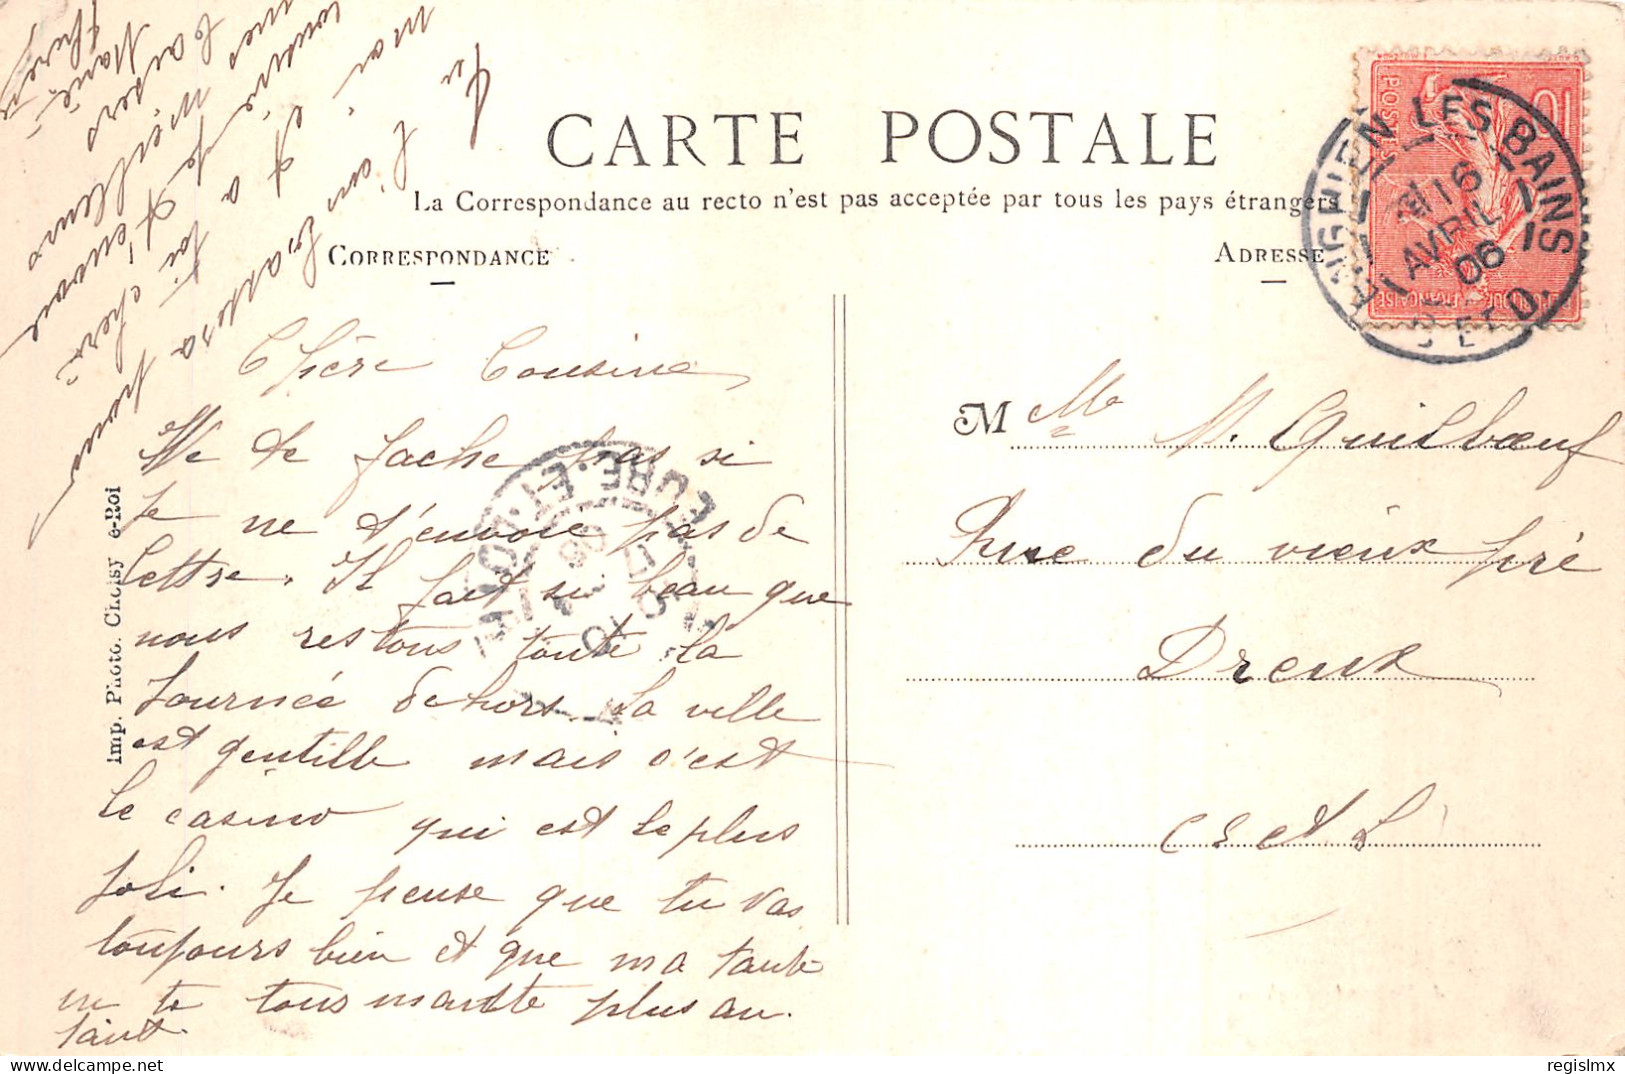 CARTE POSTALE
La Correspondance au recto n'est pas acceptée par tous les pays étrangers
CORRESPONDANCE
ADRESSE
Chère Cousine,
Ne te fache pas si
Je ne t'envoie pas de
lettre. Il fait si beau que
nous restons toute la
Journée dehors. La ville
est gentille mais c'est
le casino qui est le plus
joli. Je pense que tu vas
toujours bien et que ma tante
ne te tourmente plus au-
tant.
Tu l'embrasseras pour
moi et à toi chère
cousine je t'envoie
mes meilleurs
baisers
Marie
Imp. Photo. Choisy-le-Roi
M lle M. Guilbœuf
Rue du vieux pré
Dreux
E et L
ENGHIEN LES BAINS
16
AVRIL
06
S. ET O.
10
POSTES
REPUBLIQUE FRANÇAISE
EURE-ET-LOIR
17
06
regislmx